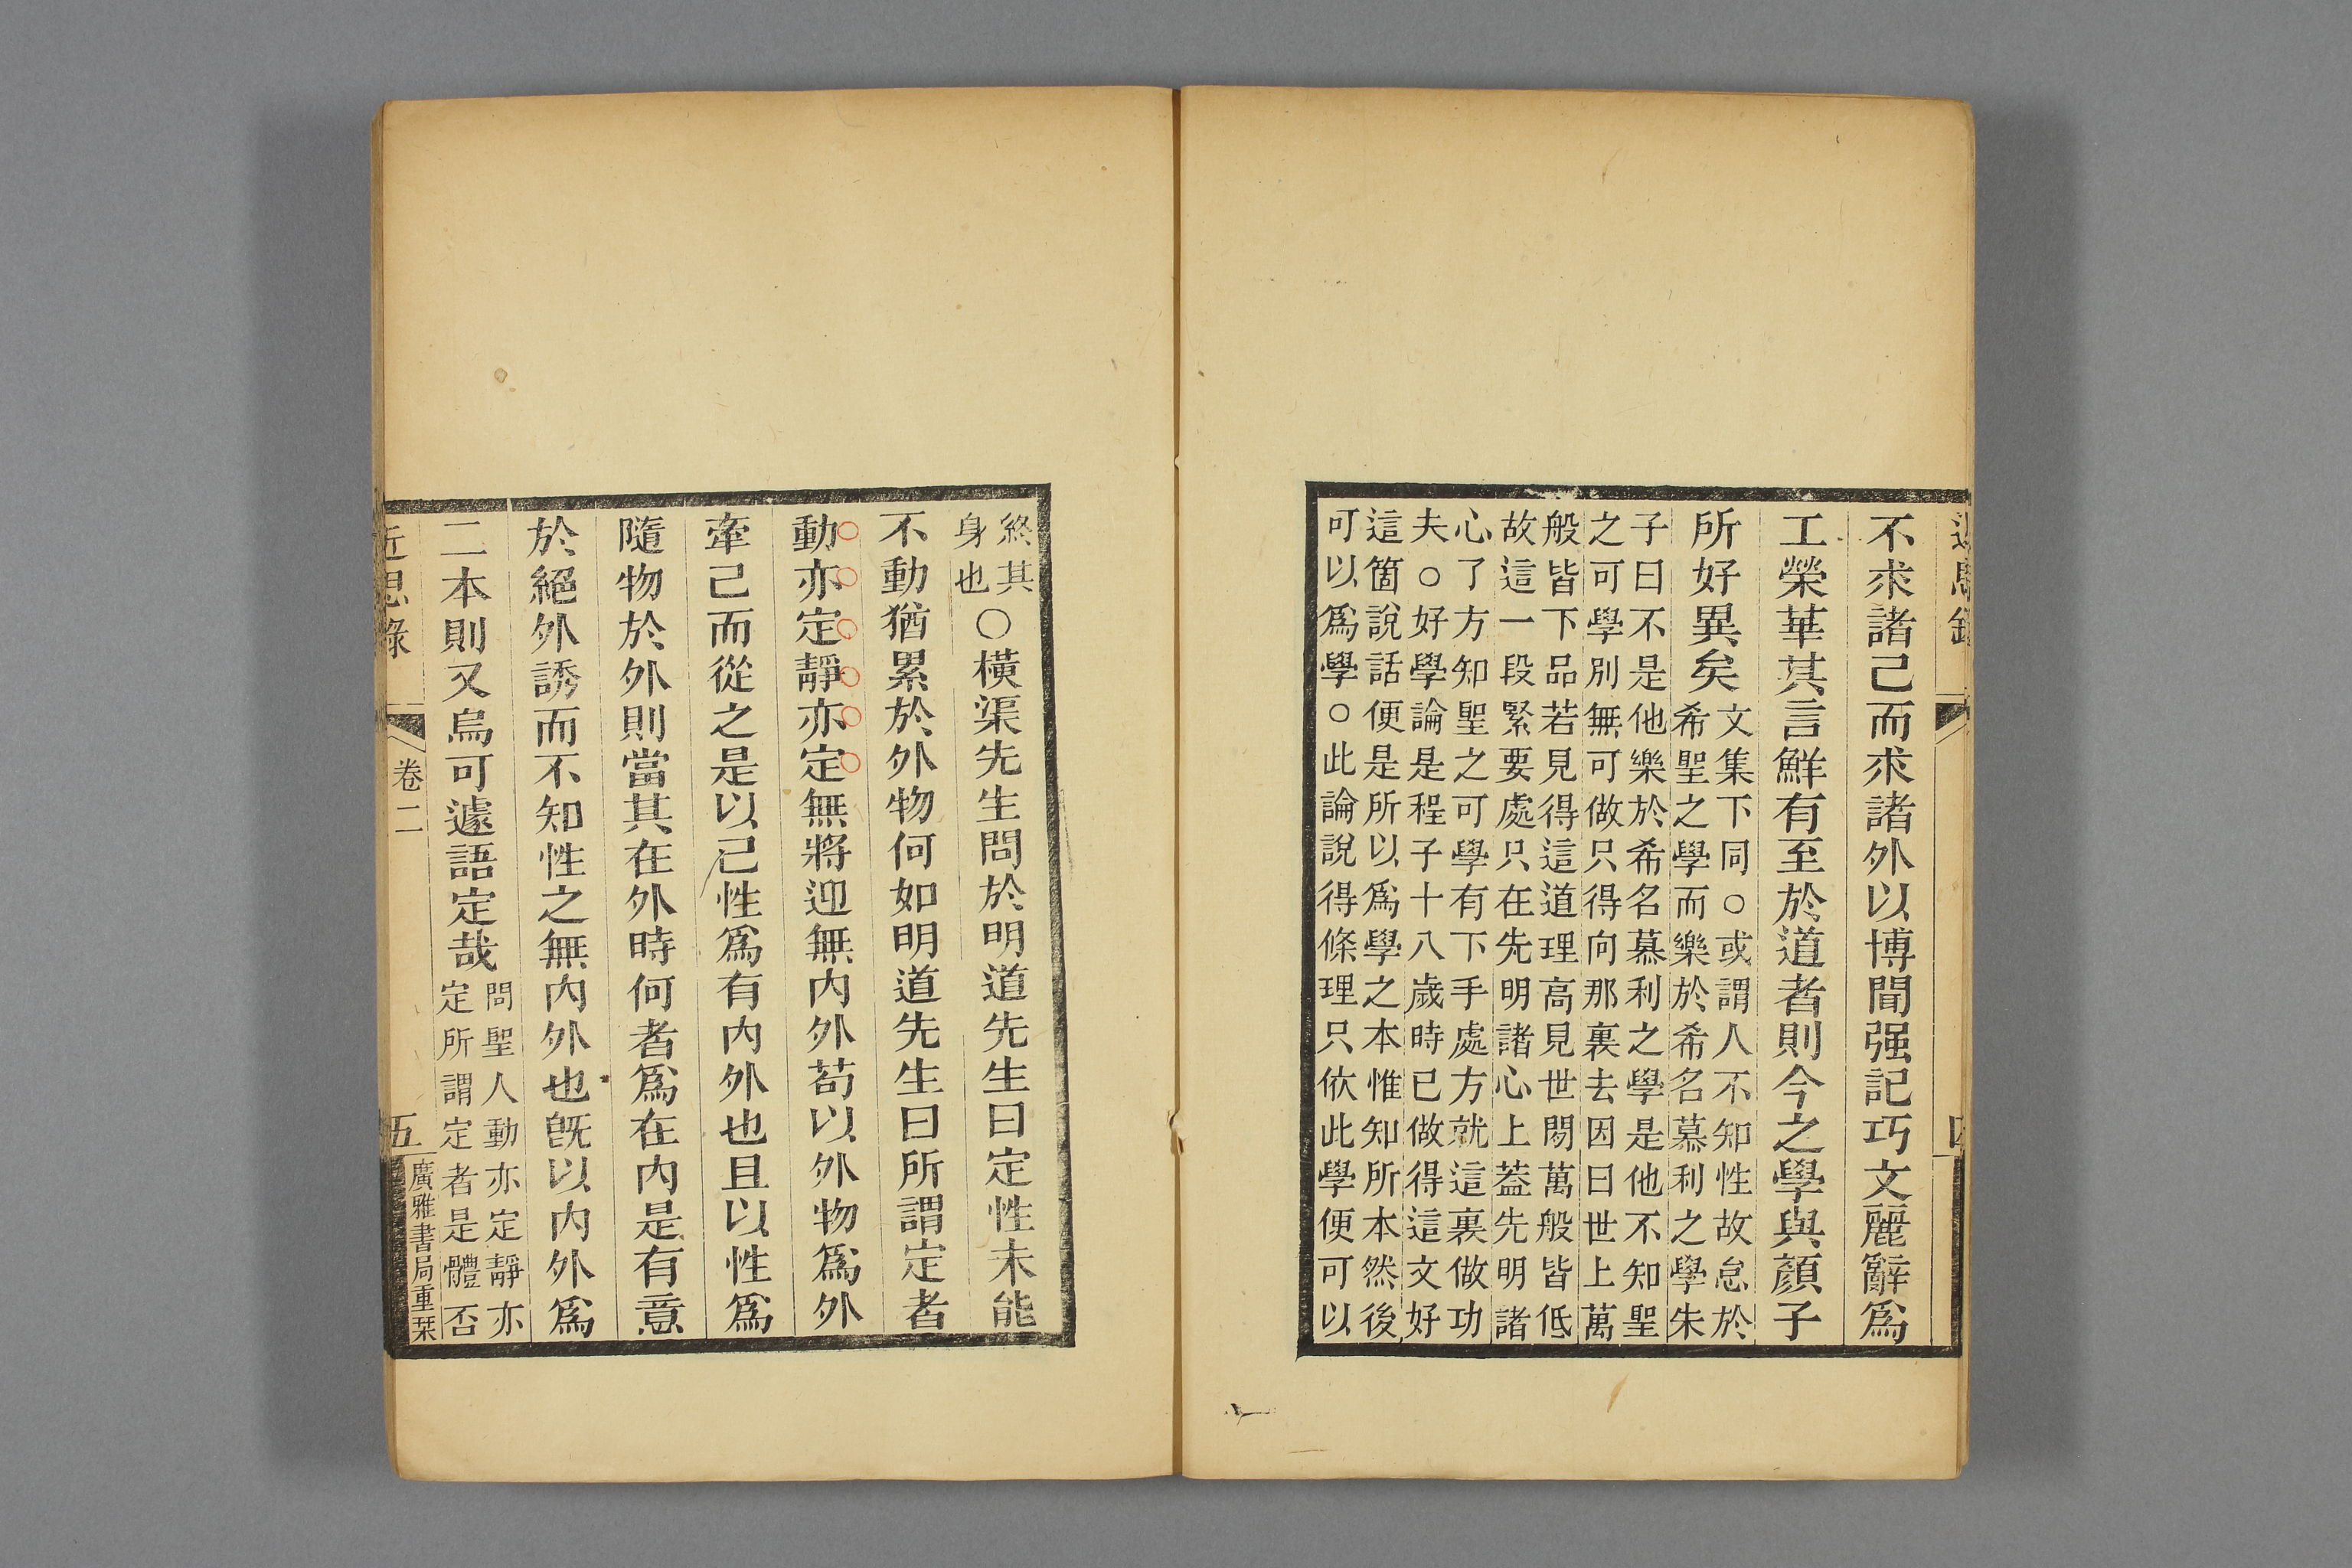 不求諸己而求諸外以博聞强記巧文麗辭爲
工榮華其言鮮有至於道者則今之學與顏子
所好異矣
文集下同○或謂人不知性故怠於
希聖之學而樂於希名慕利之學朱
子曰不是他樂於希名慕利之學是他不知聖
之可學別無可做只得向那裏去因曰世上萬
般皆下品若見得這道理高見世閒萬般皆低
故這一段緊要處只在先明諸心上蓋先明諸
心了方知聖之可學有下手處方就這裏做功
夫○好學論是程子十八歲時已做得這文好
這箇說話便是所以爲學之本惟知所本然後
可以爲學○此論說得條理只依此學便可以
終其
身也
○橫渠先生問於明道先生曰定性未能
不動猶累於外物何如明道先生曰所謂定者
動亦定靜亦定無將迎無內外苟以外物爲外
牽己而從之是以己性爲有內外也且以性爲
隨物於外則當其在外時何者爲在內是有意
於絕外誘而不知性之無內外也旣以內外爲
二本則又烏可遽語定哉
問聖人動亦定靜亦
定所謂定者是體否
近思錄
卷二
五
廣雅書局重栞